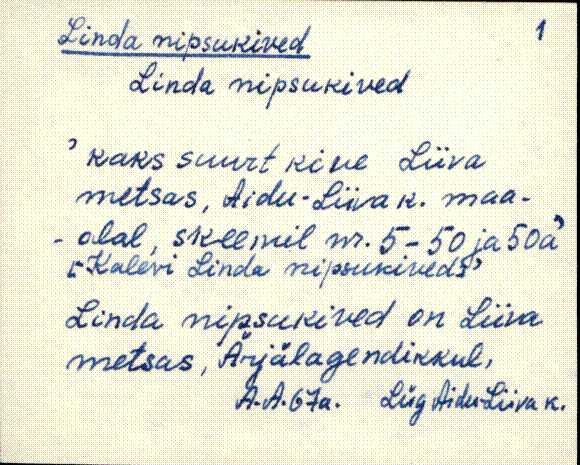 1
Linda nipsukived
Linda nipsukived
' kaks suurt kive Liiva
metsas, Aidu-Liiva k. maa-
-alal, skeemil nr. 5-50 ja 50a'
[Kalevi Linda nipsukived]'
Linda nipsukived on Liiva
metsas, Ärjälagendikkul.
A.A. 67a. Lüg Aidu-Liiva k.